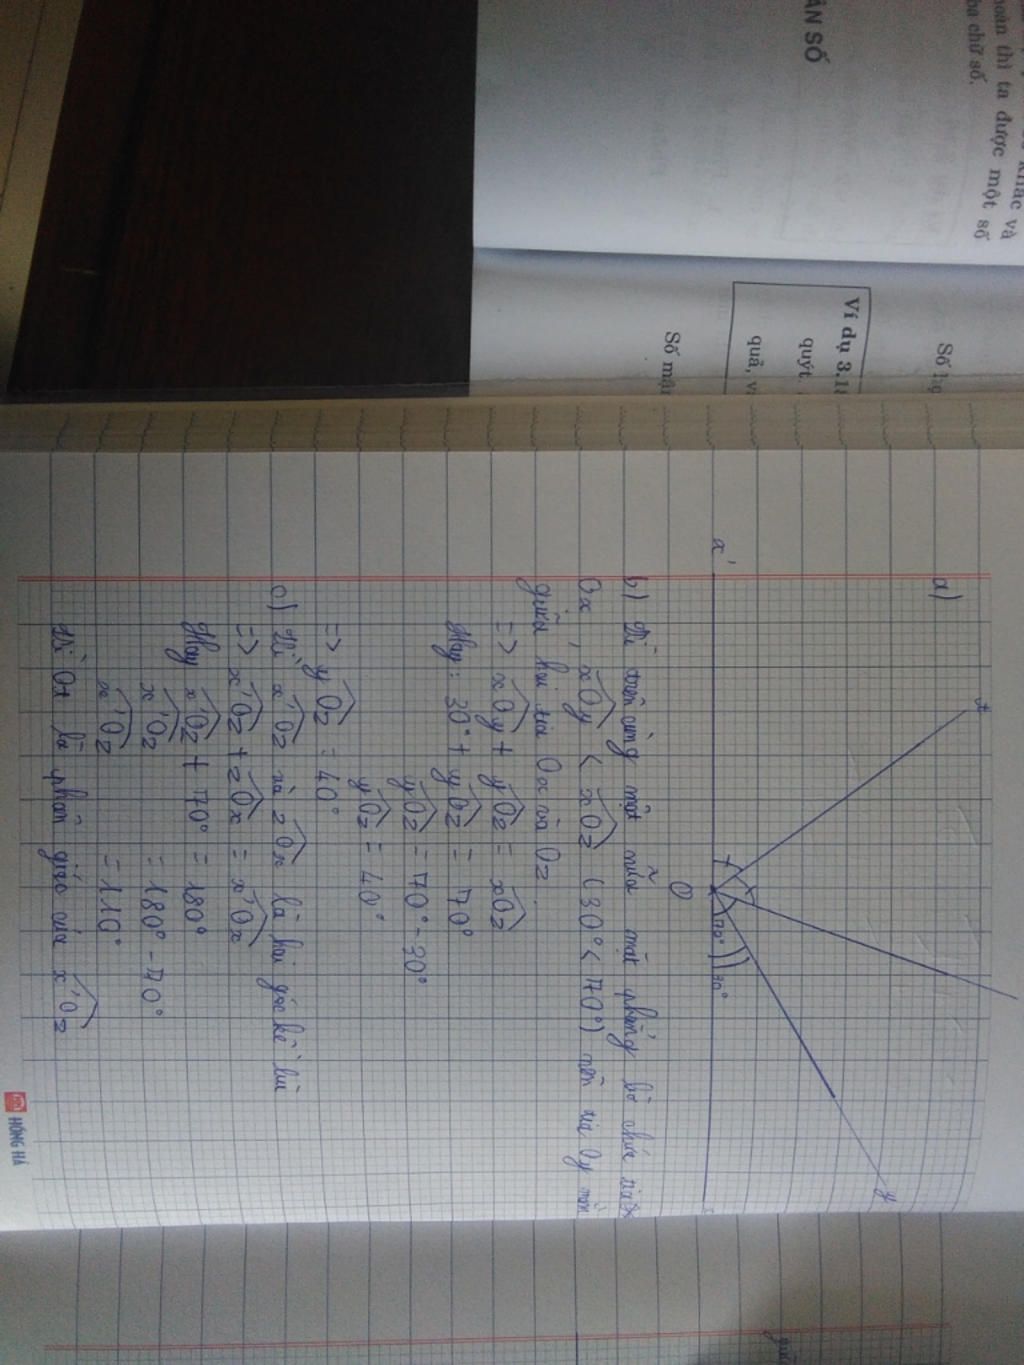 khác và
hoàn thì ta được một số
ba chữ số.
ÂN SỐ
Ví dụ 3.1
quýt.
quả, v
Số mận
a)
t
x'
O
70°
30°
y
b) Vì trên cùng một nửa mặt phẳng bờ chứa tia
Ox, xOy < xOz (30° < 70°) nên tia Oy nằm
giữa hai tia Ox và Oz.
=> xOy + yOz = xOz
Hay: 30° + yOz = 70°
yOz = 70° - 30°
yOz = 40°
=> yOz = 40°
c) Vì x'Oz và zOx là hai góc kề bù
=> x'Oz + zOx = x'Ox
Hay x'Oz + 70° = 180°
x'Oz = 180° - 70°
x'Oz = 110°
Vì Ot là phân giác của x'Oz
HỒNG HÀ